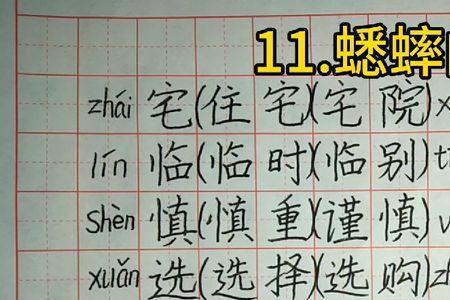 11.蟋蟀
zhái 宅(住宅)(宅院)
lín 临(临时)(临别)
Shèn 慎(慎重)(谨慎)
xuǎn 选(选择)(选购)